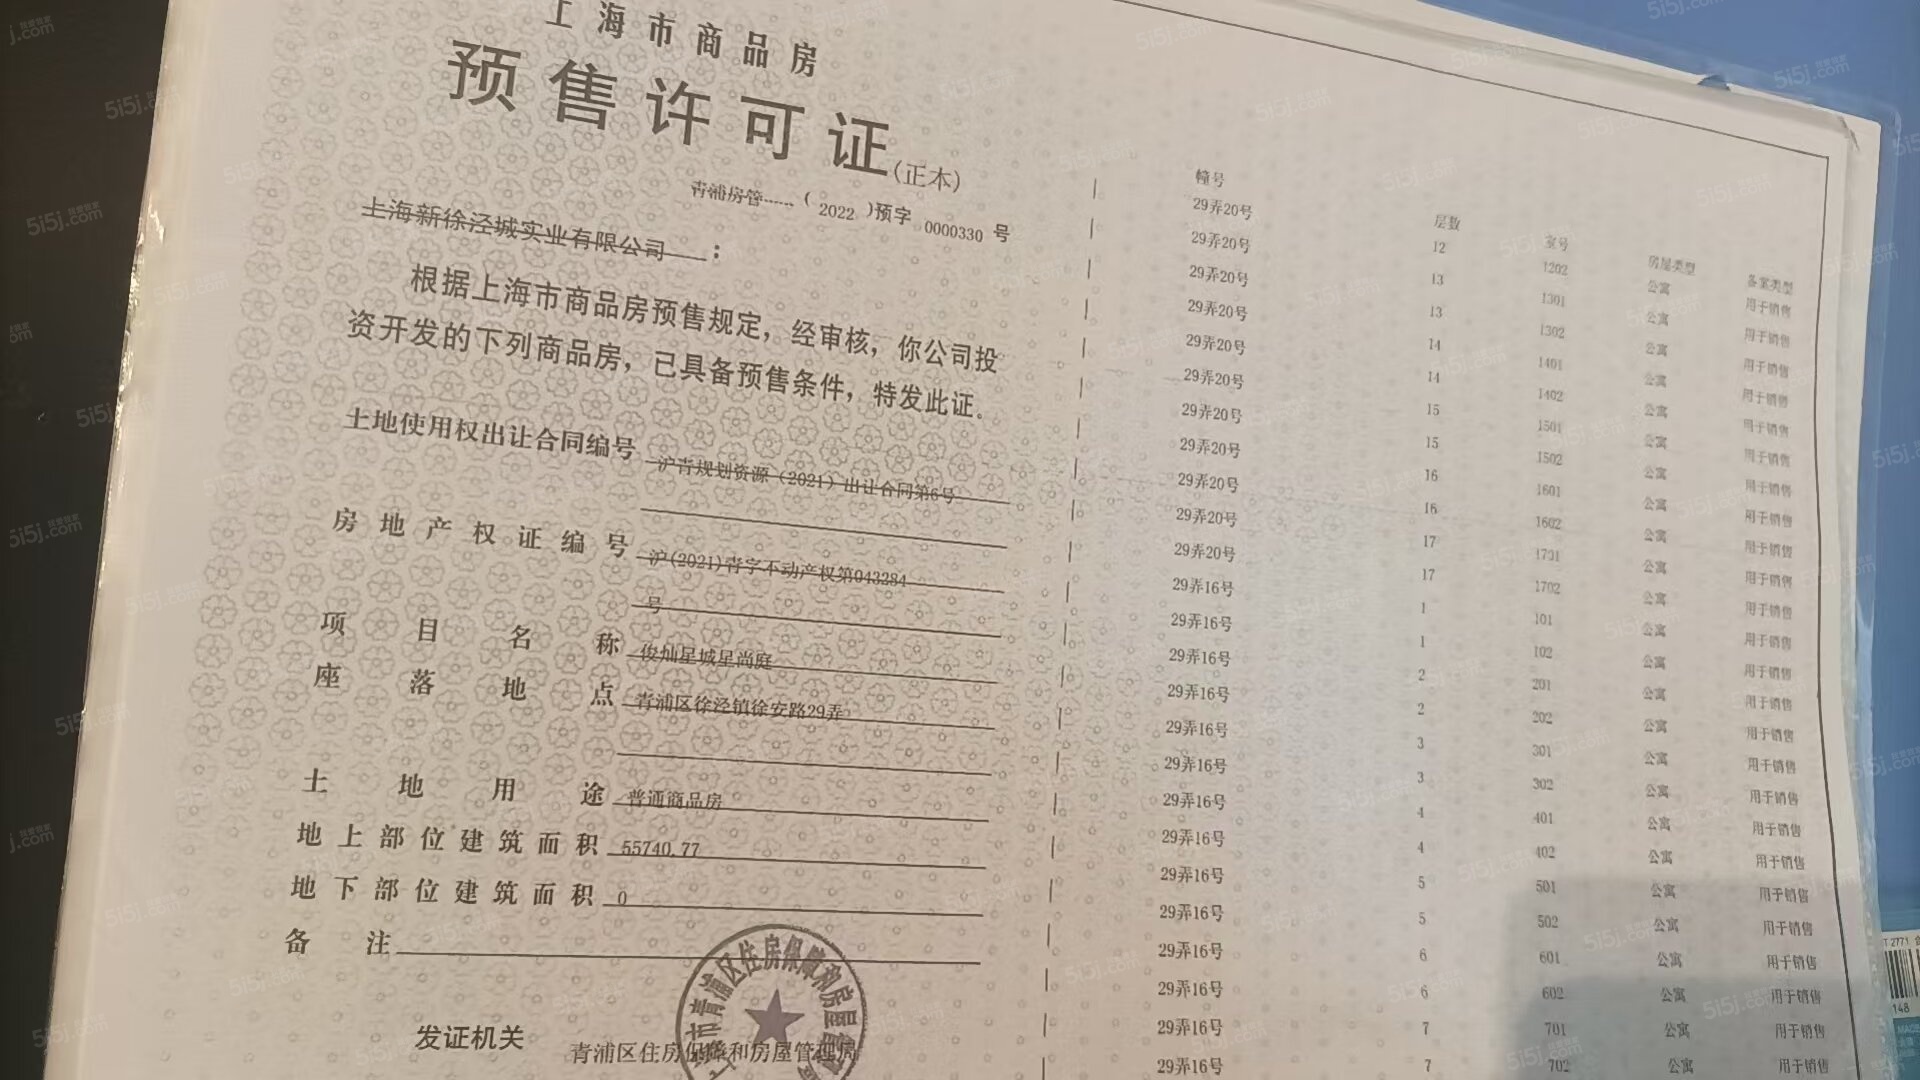 上海市商品房
预售许可证(正本)
青浦房管 (2022)预字0000330号
上海新徐泾城实业有限公司:
根据上海市商品房预售规定，经审核，你公司投
资开发的下列商品房，已具备预售条件，特发此证。
土地使用权出让合同编号 沪青规划资源（2021）出让合同第6号
房地产权证编号 沪(2021)青字不动产权第043284
号
项目名称 俊灿星城星尚庭
座落地点 青浦区徐泾镇徐安路29弄
土地用途 普通商品房
地上部位建筑面积 55740.77
地下部位建筑面积 0
备注
发证机关 青浦区住房保障和房屋管理局
幢号 层数 室号 房屋类型 备案类型
29弄20号 12 1202 公寓 用于销售
29弄20号 13 1301 公寓 用于销售
29弄20号 13 1302 公寓 用于销售
29弄20号 14 1401 公寓 用于销售
29弄20号 14 1402 公寓 用于销售
29弄20号 15 1501 公寓 用于销售
29弄20号 15 1502 公寓 用于销售
29弄20号 16 1601 公寓 用于销售
29弄20号 16 1602 公寓 用于销售
29弄20号 17 1701 公寓 用于销售
29弄20号 17 1702 公寓 用于销售
29弄16号 1 101 公寓 用于销售
29弄16号 1 102 公寓 用于销售
29弄16号 2 201 公寓 用于销售
29弄16号 2 202 公寓 用于销售
29弄16号 3 301 公寓 用于销售
29弄16号 3 302 公寓 用于销售
29弄16号 4 401 公寓 用于销售
29弄16号 4 402 公寓 用于销售
29弄16号 5 501 公寓 用于销售
29弄16号 5 502 公寓 用于销售
29弄16号 6 601 公寓 用于销售
29弄16号 6 602 公寓 用于销售
29弄16号 7 701 公寓 用于销售
29弄16号 7 702 公寓 用于销售